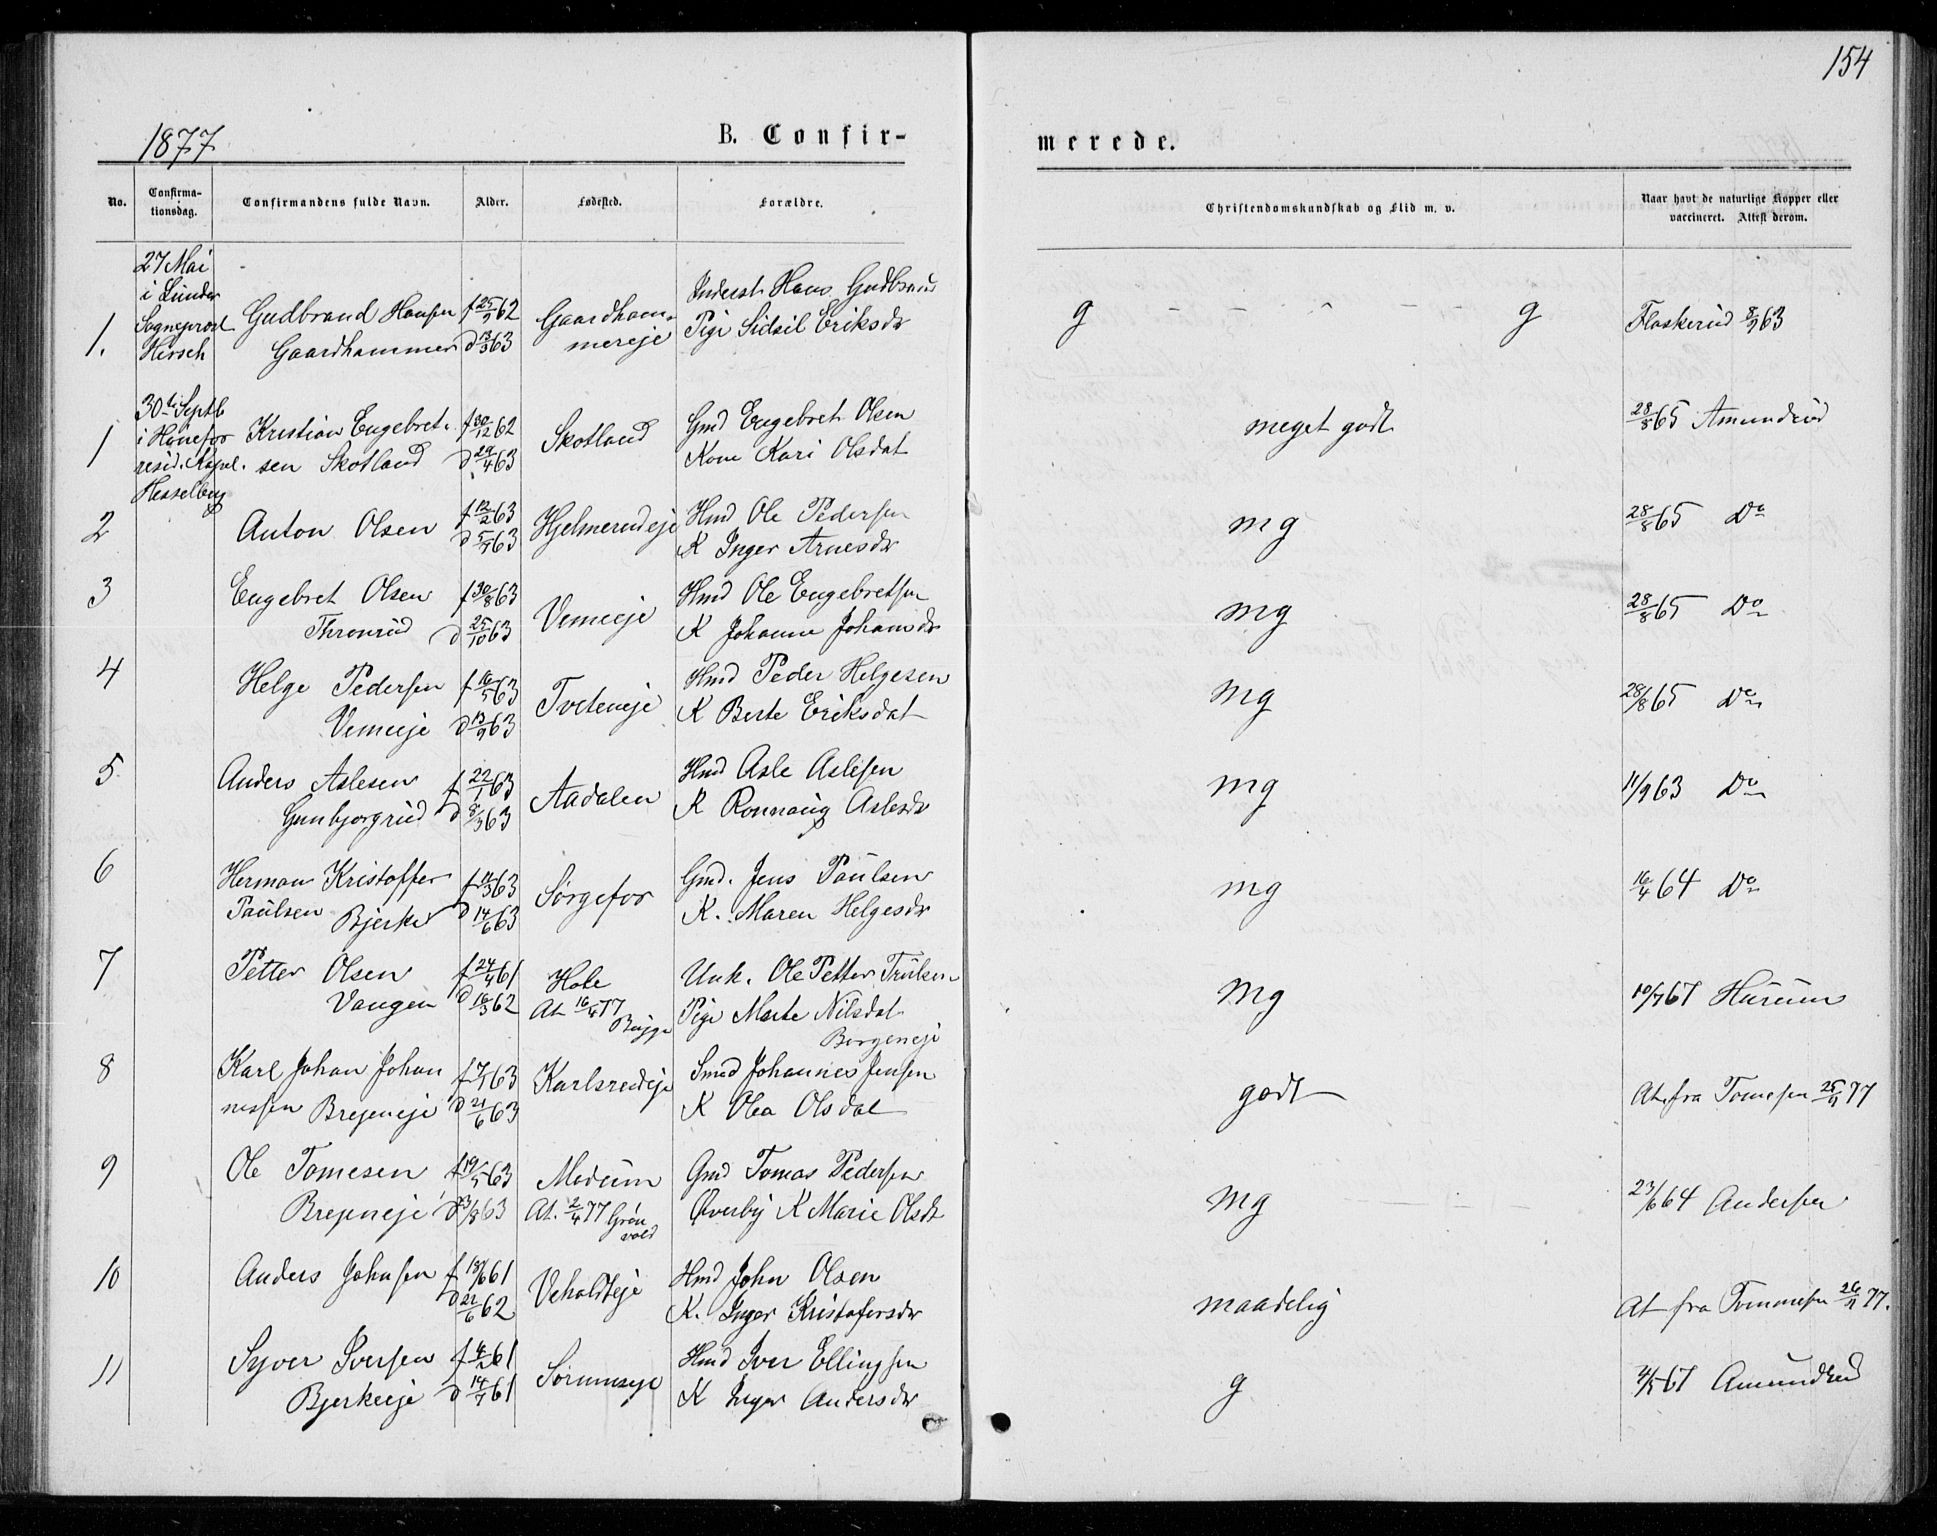 154
1877
B. Confir-
merede.
No. Confirma-tionsdag. Confirmandens fulde Navn. Alder. Fødested. Forældre. Christendomskundskab og Flid m. v. Naar havt de naturlige Kopper eller vaccineret. Attest derom.
27 Mai
i Lunder
Sogneprost
Hirsch
1. Gudbrand Hansen f 25/9 62 Gaardham- Inderst Hans Gudbrans g - - - - - g Flaskerud 8/9 63
Gaardhammer d 63 mereje Pige Sidsil Eriksdr
30te Septb
i Hønefos
resid. Kapel.
Hesselberg
1 Kristian Engebret- f 30/12 62 Skotland Gmd Engebret Olsen meget godt 28/8 65 Amundrud
sen Skotland d 29/4 63 Kone Kari Olsdat
2 Anton Olsen f 12/2 63 Hjelmerudeje Hmd Ole Pedersen mg 28/8 65 Do
d 5/7 63 K Inger Arnesdr
3 Engebret Olsen f 30/8 63 Vemeeje Hmd Ole Engebretsen mg 28/8 65 Do
Thronrud d 25/10 63 K Johanne Johansdr
4 Helge Pedersen f 16/5 63 Tveteneje Hmd Peder Helgesen mg 28/8 65 Do
Vemeeje d 13/9 63 K Berte Eriksdat
5 Anders Aslesen f 22/1 63 Aadalen Hmd Asle Aslesen mg 11/9 63 Do
Gunbjorgrud d 8/3 63 K Ronnaug Aslesdr
6 Herman Kristoffer f 11/3 63 Sørgefos Gmd. Jens Paulsen mg 16/4 64 Do
Paulsen Bjerke d 14/6 63 K. Maren Helgesdr
7 Petter Olsen f 24/4 61 Hole Unk. Ole Petter Trulsen mg 10/7 67 Hurum
Vangen d 16/3 62 At 16/4 77 Bugge Pige Marte Nilsdat
Borgeneje
8 Karl Johan Johan f 7/1 63 Karlsrudeje Smed Johannes Jensen godt At. fra Tomesen 25/9 77
nessen Bregeneje d 21/6 63 K Olea Olsdat
9 Ole Tomesen f 19/5 63 Modum Gmd Tomas Pedersen mg 23/6 64 Andersen
Bregeneje d 23/8 63 At. 2/4 77 Grøn Øverby K Marie Olsdt
vold
10 Anders Johnsen f 18/6 61 Veholdteje Hmd John Olsen maadelig At fra Tommesen 26/9 77.
d 22/6 62 K. Inger Kristofersdr
11 Syver Iversen f 61 Hmd Iver Ellingsen g 4/5 67 Amundrud
Bjerkeeje d 14/7 61 K Inger Andersdr